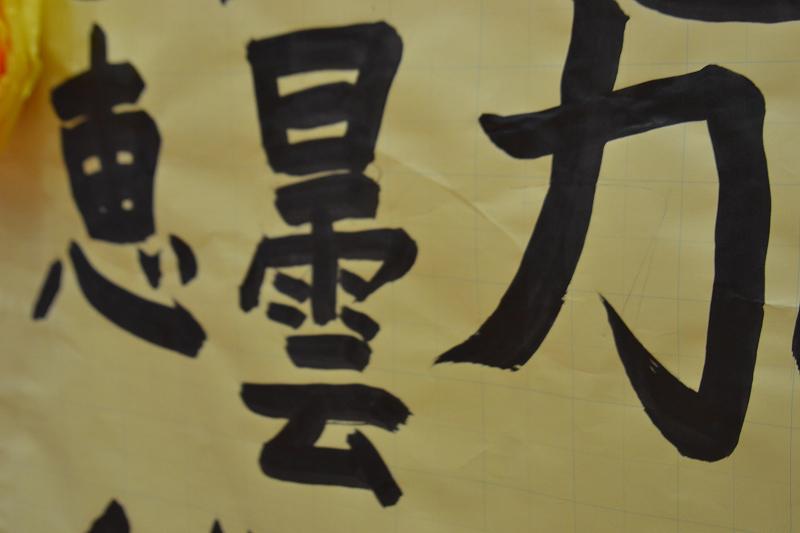 力
曇
恵